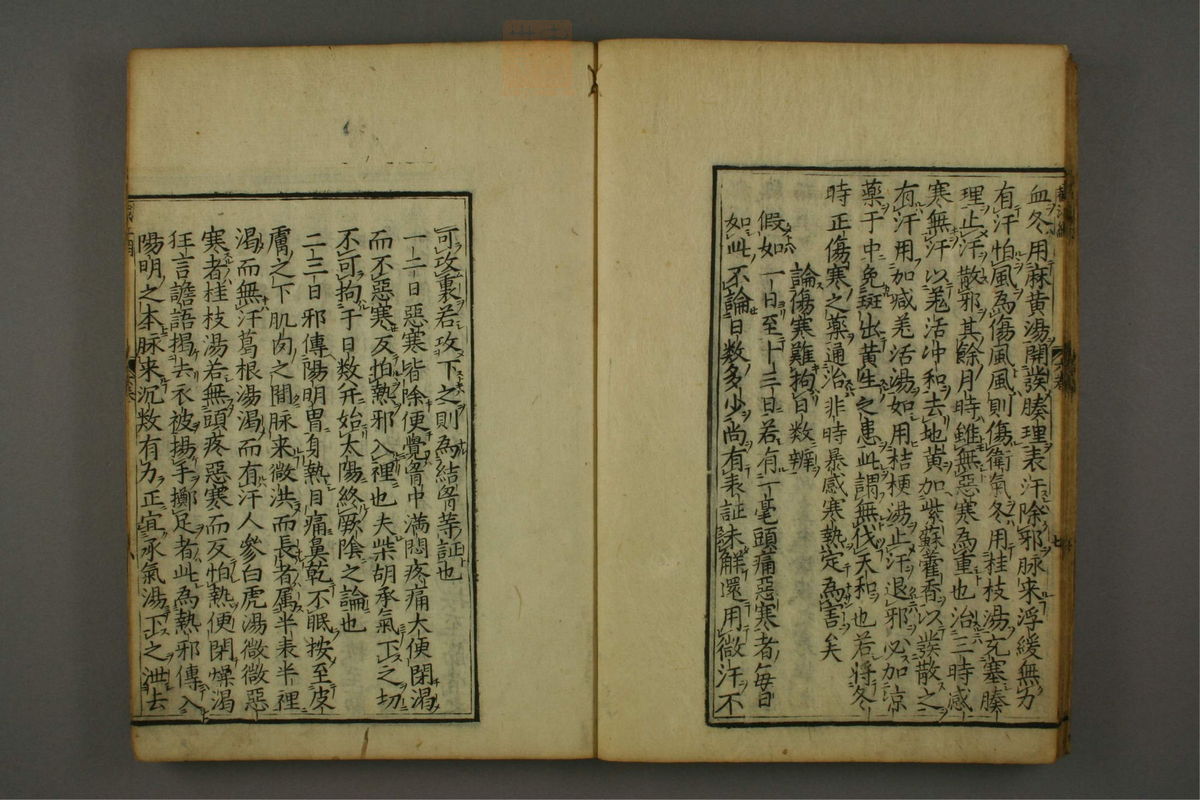 血冬用麻黄湯開發腠理表汗除邪脉来浮緩無力
有汗怕風為傷風風則傷衛氣冬用桂枝湯充塞腠
理止汗散邪其餘月時雖無惡寒為重也治三時感
寒無汗以羗活冲和去地黄加紫蘇藿香以發散之
有汗用加減羗活湯如用桔梗湯止汗退邪必加凉
藥于中免斑出黄生之患此謂無伐天和也若将冬
時正傷寒之藥通治非時暴感寒熱定為害矣
論傷寒難拘日数辨
假如一日至十三日若有一毫頭痛惡寒者毎日
如此不論日数多少尚有表証未解還用微汗不
可攻裏若攻下之則為結胷等証也
一二日惡寒皆除便覺胷中満悶疼痛大便閉渴
而不惡寒反怕熱邪入裡也夫柴胡承氣下之切
不可拘于日数开始太陽終厥陰之論也
二三日邪傳陽明胃身熱目痛鼻乾不眠按至皮
膚之下肌肉之間脉来微洪而長者属半表半裡
渴而無汗葛根湯渴而有汗人參白虎湯微微惡
寒者桂枝湯若無頭疼惡寒而反怕熱便閉燥渴
狂言譫語揭去衣被揚手擲足者此為熱邪傳入
陽明之本脉来沉数有力正宜承氣湯下之泄去